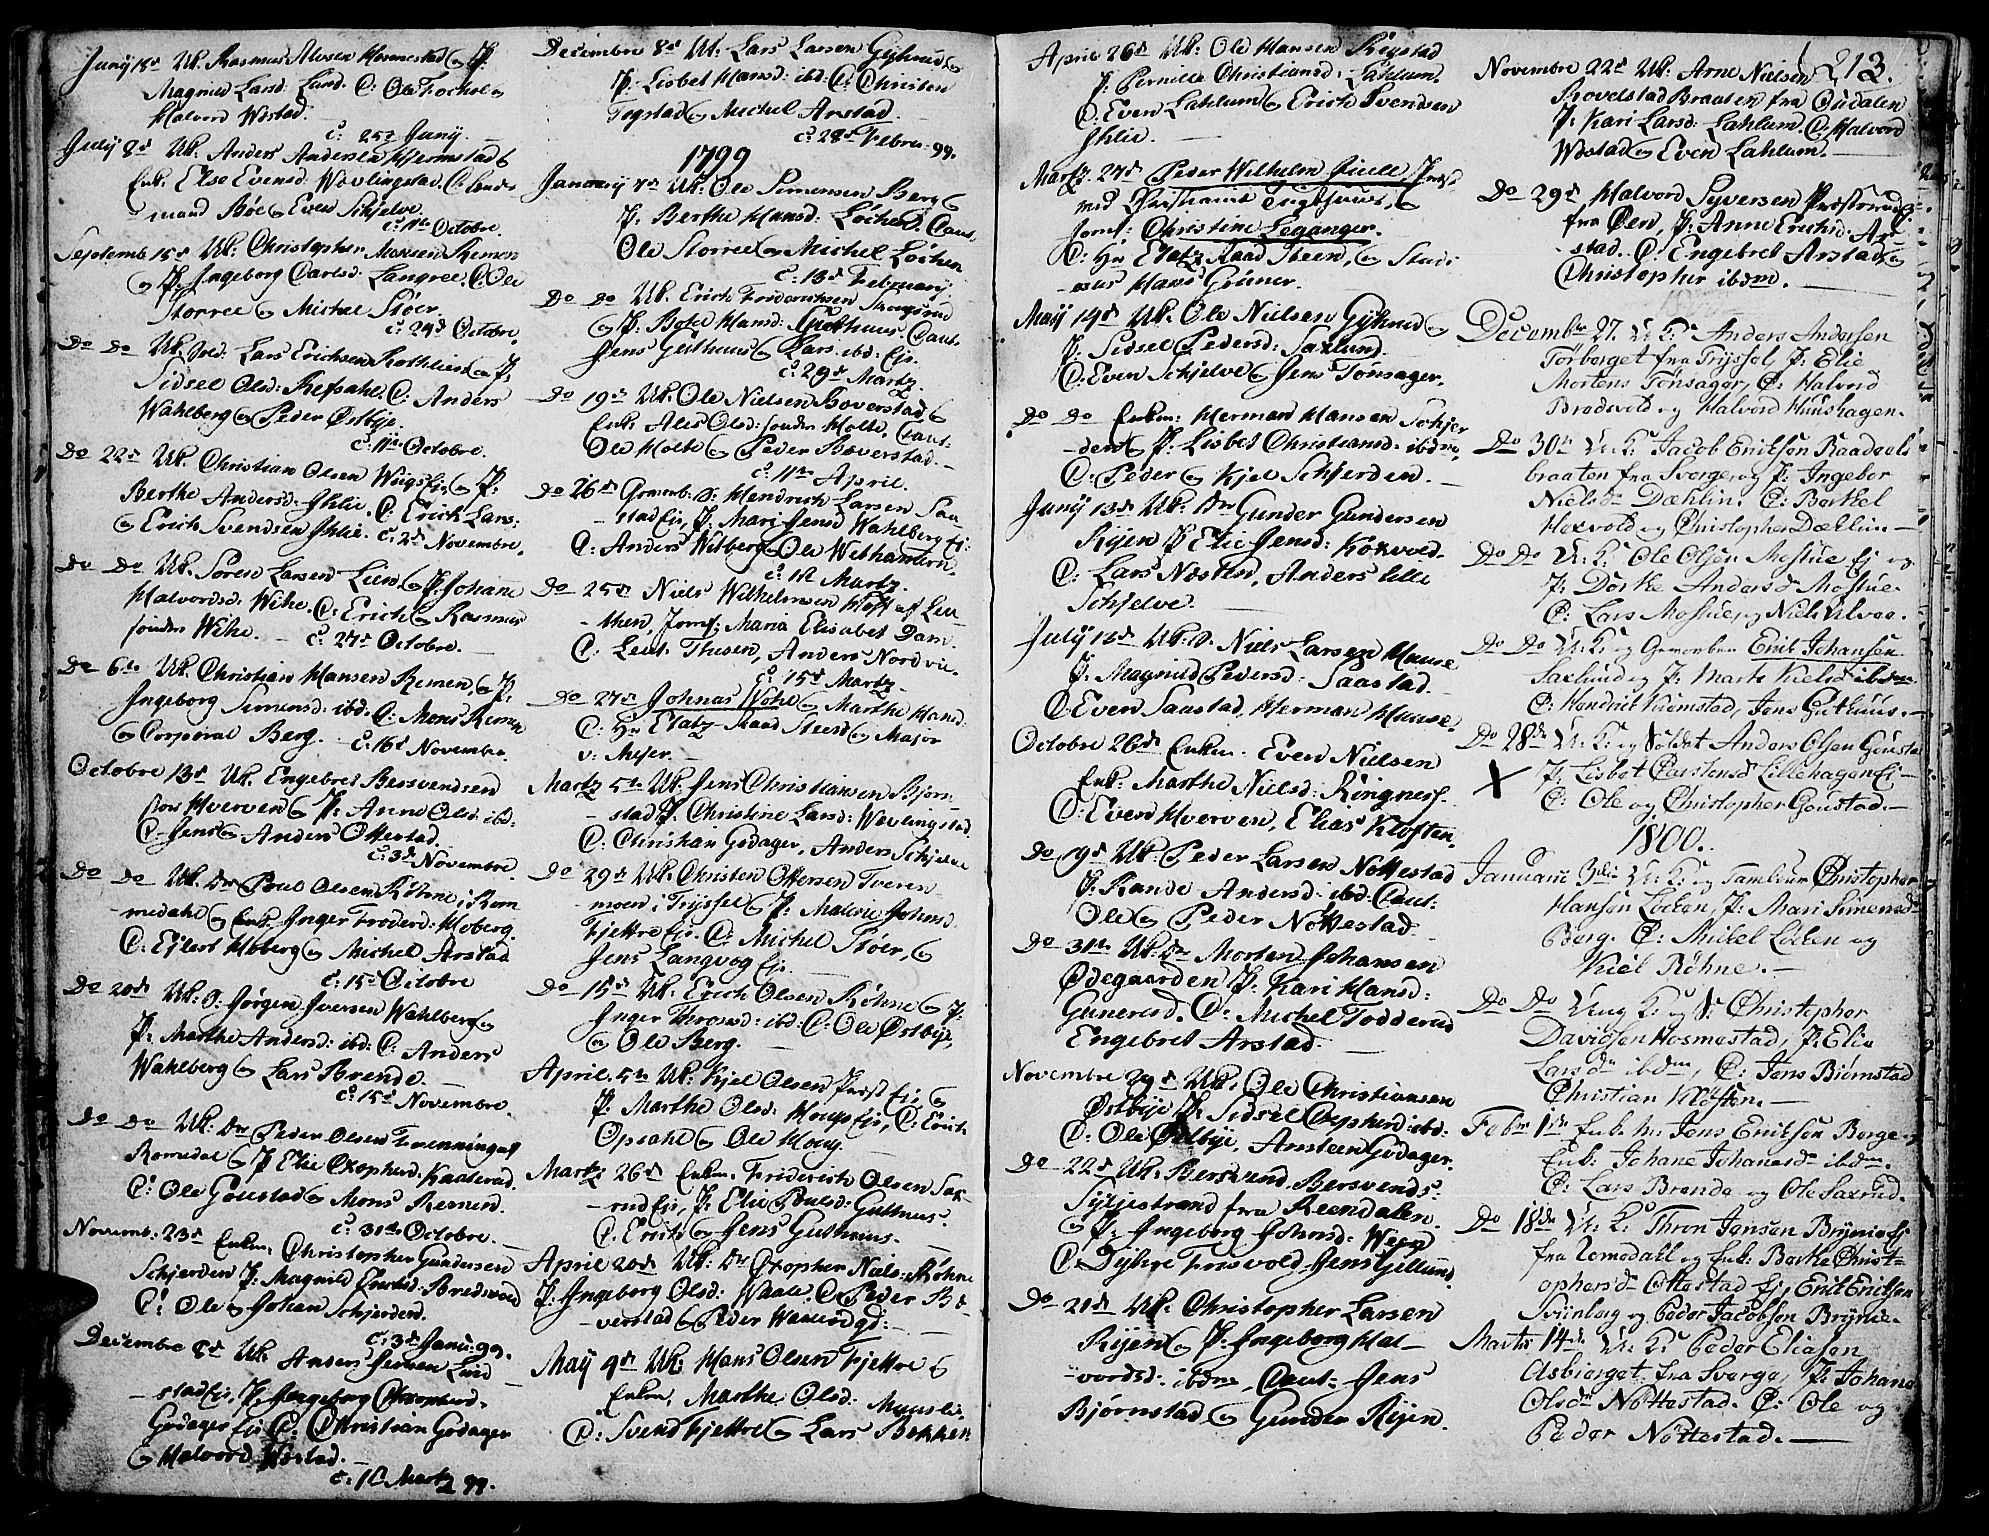 Junÿ 18d Uk. Rasmus Alvsen Hommestad og P:
Magnild Larsd. Lund. C: Ole Focholm og
Halvord Wæstad.
c: 25d Junÿ.
Julÿ 8d Uk. Anders Andersen Hermstad og
Enk. Else Evensd. Wævlingstad. C: Lends
mand Bøe og Even Schjelve.
c: 11te Octobre.
Septemb: 15d Uk. Christopher Monsen Remen
og P. Ingeborg Carlsd. Langree. C: Ole
Storree og Michel Støer.
c: 29d Octobre.
Do Do Uk. Sold. Lars Erichsen Rothlien og P.
Sidsel Olsd: Refsahl. C: Anders
Wahlberg og Peder Østbÿe.
c: 11te Octobre.
Do 22d Uk. Christian Olsen Wiigs Eje og P:
Berthe Andersd. Ihlie. C: Erick Lars:
og Erich Svendsen Ihlie. c: 2d Novembre.
Do Do Uk. Søren Larsen Lien og P. Johane
Halvordsd: Wihe. C: Erich og Rasmus
sønder Wihe. c: 27d Octobre.
Do 6te Uk. Christian Hansen Remen, og P:
Ingeborg Simensd: ibd. C: Mons Remen
og Corporal Berg. c: 16d Novembre.
Octobre 13d Uk. Engebret Bersvendsen
Stor Hverven og P: Anne Olsd: ibd:
C: Jens og Anders Ottestad.
c: 3d Novembre.
Do Do Uk. Dr Poul Olsen Røhne i Rom
medahl og Enk. Inger Frodesd: Hoberg.
C: Ejlert Hoberg og Michel Arstad
c: 15d Octobre
Do 20d Uk. S: Jørgen Iversen Wahlberg og
P: Marthe Andersd: ibd: C: Anders
Wahlberg og Lars Brende.
c: 15d Novembre.
Do Do Uk: Dr Peder Olsen Frenning af
Romedal og P Elie Cxophersd: Kaaterud.
C: Ole Goustad og Mons Remen.
c: 31te Octobre.
Novemb. 23d Enkm: Christopher Gundersen
Schjerden P. Magnild Ericsd: Bredsveed
C: Ole og Johan Schjerden.
c: 3d Janu: 99.
Decembre 8d Uk. Anders Jensen Lund
stad Eje, P. Ingeborg Cxophersd.
Godager Eje C: Christian Godager
og Halvord Wæstad.
c: 1d Martz 99.
Decembre 8d Uk. Lars Larsen Gÿhrud og
P. Lisbet Hansd: ibd. C: Christen
Togstad og Michel Arstad.
c: 28d Febru. 99.
1799
January 4d Uk. Ole Simensen Berg og
P. Berthe Hansd: Løchen. Caut.
Ole Storree og Michel Løchen
c: 13d Februarÿ
Do Do Uk. Erich Friderichsen Stangerud
og P. Bothil Hansd: Guthuus. Caut.
Jens Guthuus og Lars ibd: Eje.
c: 29d Martz.
Do 19d Uk. Ole Nielsen Boverstad og
Enk Alis Olsd: sønder Holte. Caut:
Ole Holte og Peder Boverstad.
c: 11te April.
Do 26d Gevorb. S: Hendrich Larsen Saa-
stad Eje, P. Mari Jensd Wahlberg Ej:
C: Anders Wilberg og Ole Withammern.
c: 1d Martz.
Do 25d Niels Wilhelmsen Hoff af Leu
then, Jomf: Maria Elisabet Dam.
C: Leut. Thesen, Anders Nordvie.
c: 15d Martz.
Do 27d Johnas Wohl og Marthe Hansd:
C: Hr Etatz Raad Steen og Major
v: Meser.
Martz 5te Uk. Jens Christiansen Bjørn-
stad P. Christine Larsd: Wævlingstad.
C: Christian Godager, Anders Schjelve
Do 29d Uk. Christen Ottersen Tveren-
moen i Trÿssel og P: Malene Johnsd
Fjettre Eje. C: Michel Støer, og
Jens Langvog Eje.
Do 15d Uk. Erich Olsen Røhne og P:
Inger Thoresd: ibd: C: Ole Østbÿe,
og Ole Berg.
April. 5te Uk: Kjel Olsen Præst Eje, og
P. Marthe Olsd: Houg Eje, C: Erich
Opsahl og Ole Houg.
Martz 26d Enkm. Friderich Olsen Sax-
rud Eje, P: Elie Poulsd: Guthuus.
C: Erich og Jens Guthuus.
April 20d Uk. Dr Cxopher Niels: Røhne
P. Ingeborg Olsd: Waale. C: Peder Bo-
verstad og Peder Waalødgd:
Maÿ 9d Uk: Hans Olsen Fjettre og
Enken, Marthe Olsd: Muuslie.
C: Svend Fjettre og Lars Bekken
April 26d Uk: Ole Hansen Rogstad
P. Pernille Christiansd: Lahlum.
C: Even Lahlum og Erich Svendsen
Ihlie.
Martz 27d Peder Wilhelm Juell, Præst
ved Christiania Tugthuus, og
Jomf: Christine Leganger.
C: Hr Etatz Raad Steen, og Studi
osus Hans Grüner.
Maÿ 19d Uk. Ole Nielsen Gÿhrud og
P. Sidsel Pedersd: Saxlund.
C: Even Schjelve og Jens Tønsager.
Do Do Enkm: Herman Hansen Schjer
den og P. Lisbet Christiansd: ibdm,
C: Peder og Kjel Schjerden.
Junÿ 13d Uk. Dr Gunder Gundersen
Rÿen P Elie Jensd: Koxvold.
C: Lars Næsten, Anders Lille
Schjelve.
Julÿ 12d Uk. S. Niels Larsen Huuse
P. Magnild Pedersd: Saastad.
C Even Saastad, Herman Huuse.
Octobre 26d Enkm. Even Nielsen
Enk. Marthe Nielsd: Ringnes.
C: Even Hverven, Elias Kløften.
Do 9d Uk: Peder Larsen Nottestad
P. Rande Andersd: ibd: Caut:
Ole og Peder Nottestad.
Do 31te Uk. Dr Morten Johansen
Ødegaarden P. Kari Hansd:
Gunerud. C: Michel Todderud
Engebret Arstad.
Novembre 29d Uk. Ole Christiansen
Østbÿe P. Sidsel Cxophersd: ibd:
C: Ole Østbÿe, Arnsteen Godager.
Do 22d Uk. Bersvend Bersvends:
Sÿljestrand fra Reendalen.
og P. Ingeborg Johnsd: Ween
C. Dÿhre Frisvold Jens Gillund.
Do 21d Uk. Christopher Larsen
Rÿen og P. Ingeborg Hal-
vordsd: ibdm, Caut: Jens
Bjørnstad og Gunder Rÿen.
213.
Novembre 22d Uk: Arne Nielsen
Skovelstad Braaten fra Oudalen
P: Kari Larsd: Lahlum. C: Halvord
Wæstad og Even Lahlum.
Do 29d Halvord Syversen Præsterud Eje
fra Øen, P: Anne Erichsd: Ar-
stad. C: Engebret Arstad og
Christopher ibdm.
Decembr 27. U: K: Anders Andersen
Torberget fra Trÿssel, P: Elie
Mortens Tønsager, C: Halvord
Bredsvold og Halvord Huushagen.
Do 30te U: K: Jacob Erichsen Raadoels
braaten fra Sverge, og P: Ingebor
Nielsdr Dæhlin. C: Bertel
Hoxvold og Christopher Dæhlin.
Do Do U: K: Ole Olsen Mostue Ej og
P. Dorthe Andersdr Mostue.
C: Lars Mostue og Niels Ulvaa.
Do Do U: K: og Gevorben Erich Johansen
Saxlund og P: Marte Kielsd ibdm.
C: Hendrich Kiemstad, Jens Guthuus.
Do 28de U: K: og Soldat Anders Olsen Goustad
P: Lisbet Carstensd Lillehagen Ei
C: Ole og Christopher Goustad.
1800.
Januarii 3die U: K: og Tambour Christopher
Hansen Løcken, P: Mari Simensdr
Berg. C: Mickel Løcken og
Kiel Røhne.
Do Do Ung K: og S: Christopher
Davidsen Hosmestad, P: Elie
Larsdr ibdm, C: Jens Biørnstad
Christian Kløften.
Febr 1te Enk. m. Jens Erichsen Berge og
Enk: Johane Johansdr ibdm.
C: Lars Brende og Ole Saxrud.
Do 18de U: K: Thron Jensen Brÿnie Ej
fra Romedall og Enk: Berthe Christ-
ophersdr Ottestad Ej, Erich Erichsen
Sviinberg og Peder Jacobsen Brÿnie.
Martii 14de U: K: Peder Eliasen
Asbierget fra Sverge, P: Johane
Olsdr Nottestad. C: Ole og
Peder Nottestad.